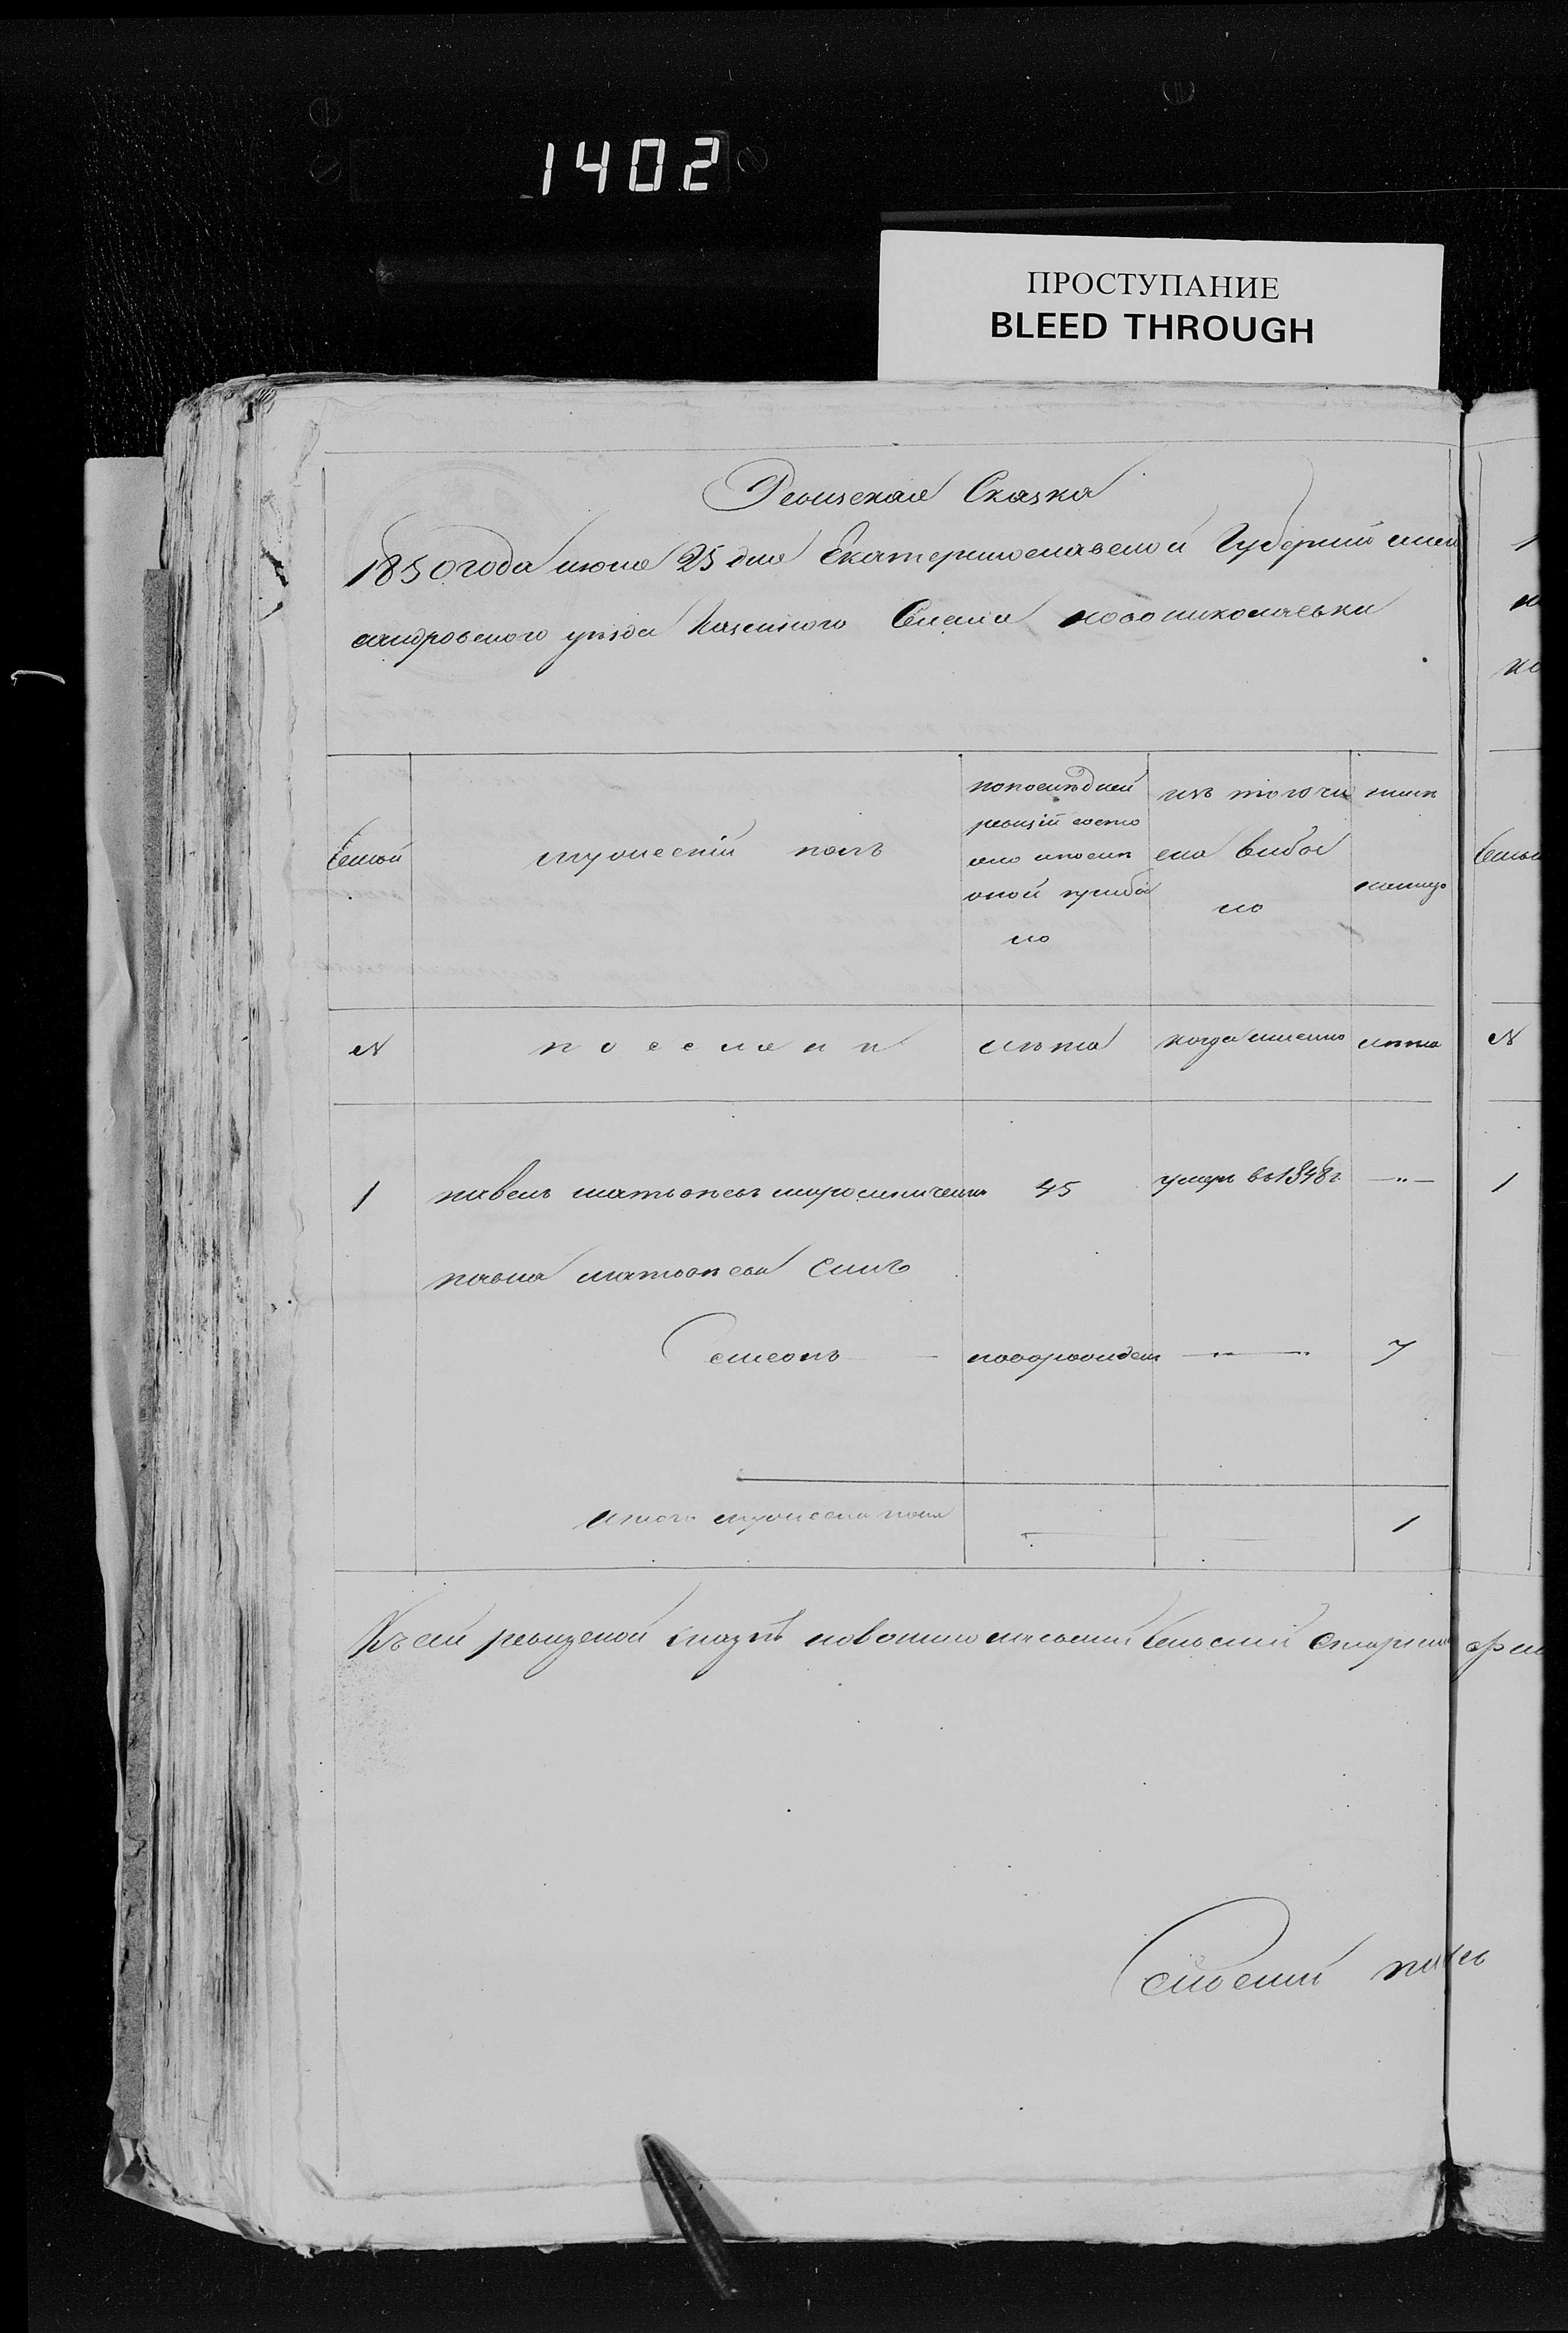 1402
ПРОСТУПАНИЕ
BLEED THROUGH
Ревизская Сказка
1850 года июня 25 дня Екатеринославской Губернии алек
сандровского уезда Казенного Селения новониколаевки
Семьи
мужеский полъ
по последней
ревизии состо
яло и после
оной прибы
ло
изъ того чи
сла выбы
ло
ныне
налицо
N
поселяне
лета
когда именно
лета
N
1
павелъ матвеевъ мирошниченко
45
умеръ въ 1848 г.
—"—
1
павла матвеева Сынъ
Семенъ
новорожден
7
итого мужеска пола
1
Къ сей ревизской сказкѣ новониколаевский Сельский Старшина
Сельский